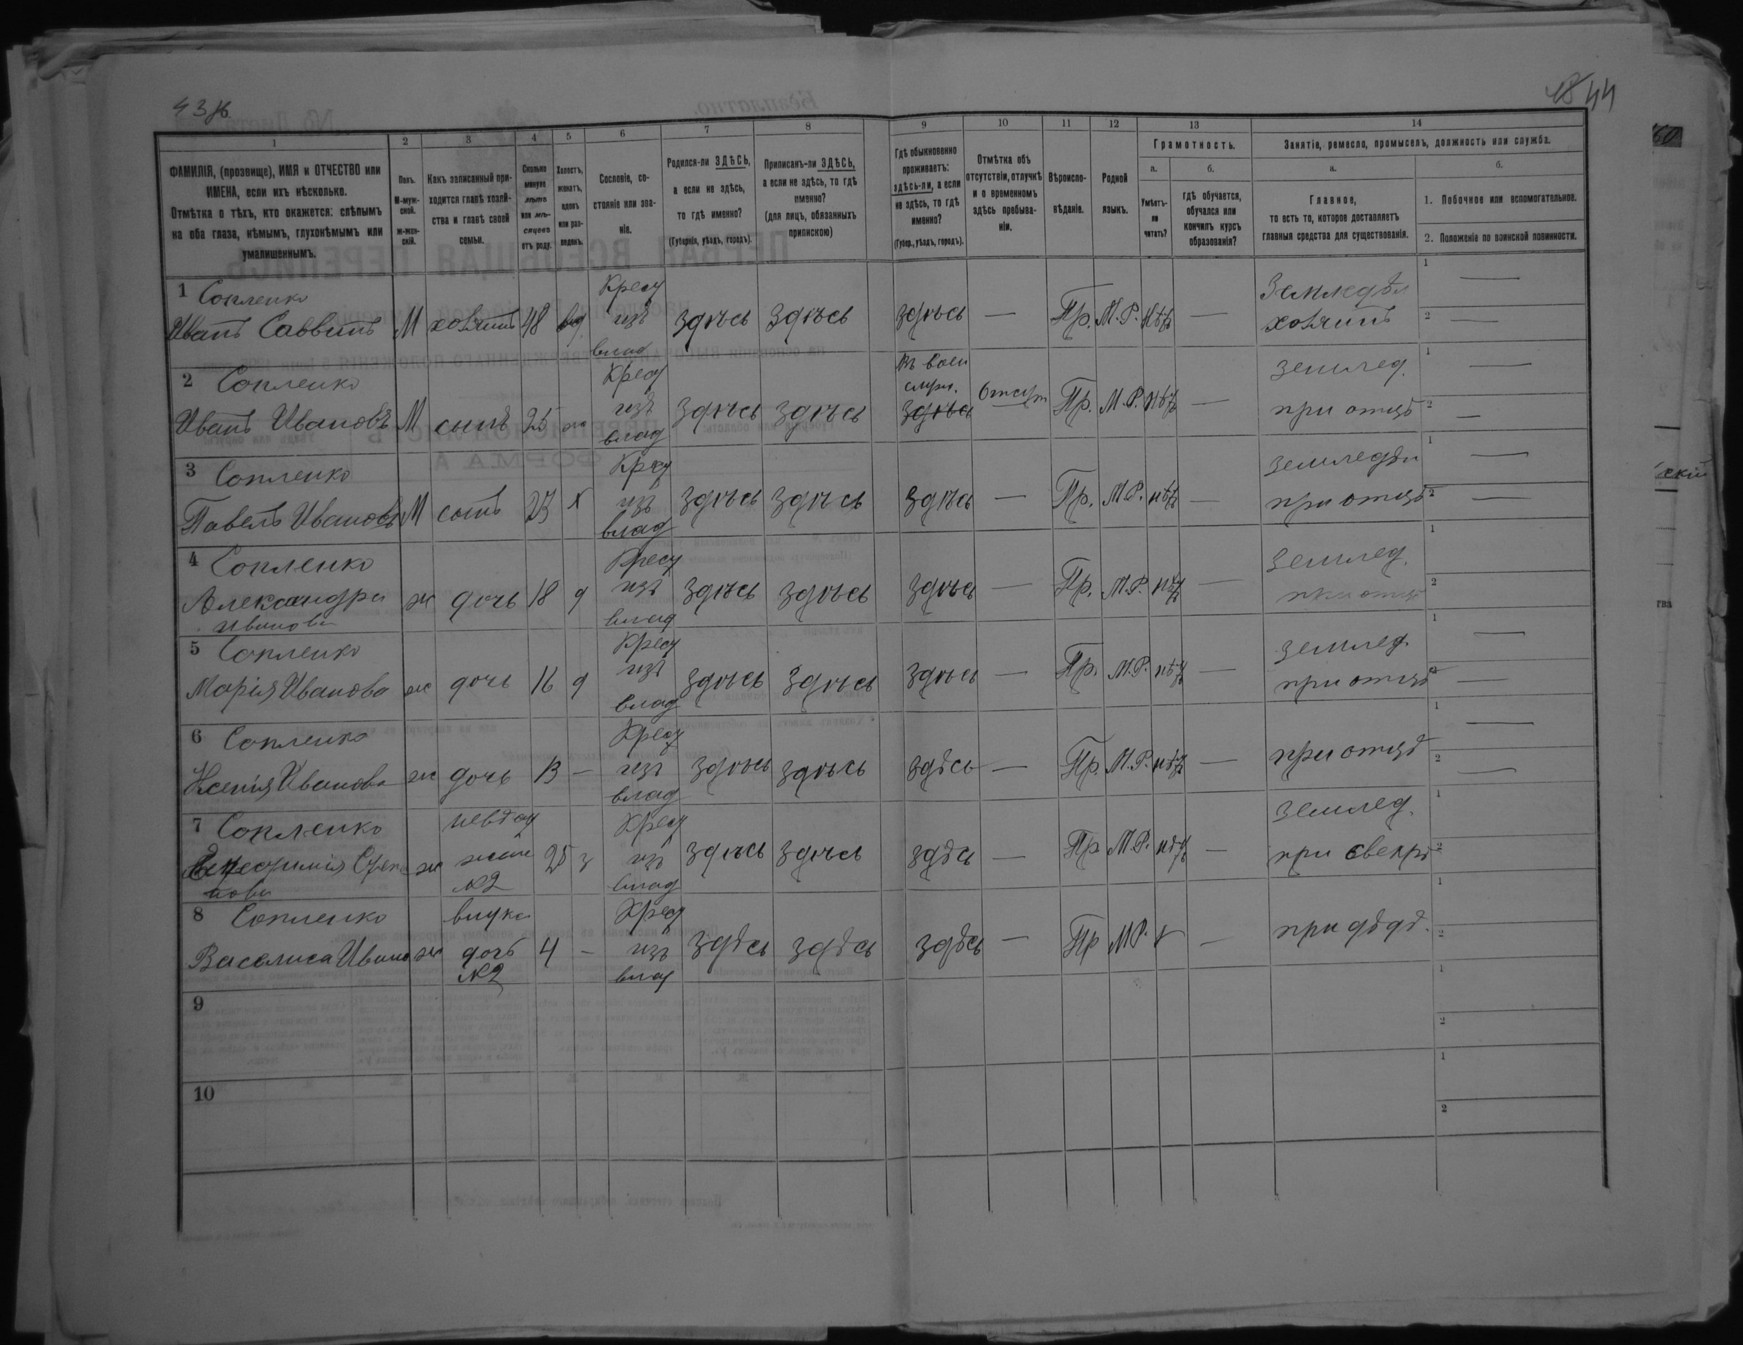 43 об
44
1 2 3 4 5 6 7 8 9 10 11 12 13 14
ФАМИЛІЯ, (прозвище), ИМЯ и ОТЧЕСТВО или
ИМЕНА, если ихъ нѣсколько.
Отмѣтка о тѣхъ, кто окажется: слѣпымъ
на оба глаза, нѣмымъ, глухонѣмымъ или
умалишеннымъ.
Полъ.
М-муж-
ской.
Ж-жен-
скій.
Какъ записанный при-
ходится главѣ хозяй-
ства и главѣ своей
семьи.
Сколько
минуло
лѣтъ
или мѣ-
сяцевъ
отъ роду.
Холостъ,
женатъ,
вдовъ
или раз-
веденъ.
Сословіе, со-
стояніе или зва-
ніе.
Родился-ли ЗДѢСЬ,
а если не здѣсь,
то гдѣ именно?
(Губернія, уѣздъ, городъ).
Приписанъ-ли ЗДѢСЬ,
а если не здѣсь, то гдѣ
именно?
(для лицъ, обязанныхъ
припискою)
Гдѣ обыкновенно
проживаетъ:
здѣсь-ли, а если
не здѣсь, то гдѣ
именно?
(Губер., уѣздъ, городъ).
Отмѣтка объ
отсутствіи, отлучкѣ
и о временномъ
здѣсь пребыва-
ніи.
Вѣроиспо-
вѣданіе.
Родной
языкъ.
Грамотность.
а.
Умѣетъ-
ли
читать?
б.
гдѣ обучается,
обучался или
кончилъ курсъ
образованія?
Занятіе, ремесло, промыселъ, должность или служба.
а.
Главное,
то есть то, которое доставляетъ
главныя средства для существованія.
б.
1. Побочное или вспомогательное.
2. Положеніе по воинской повинности.
1 Сопленко Крест Земледѣл 1 —
Иванъ Саввинъ М хозяинъ 48 вд изъ здѣсь здѣсь здѣсь — Пр. М.Р. нѣтъ — хозяинъ 2 —
влад
2 Сопленко Крест Въ воен землед. 1 —
служ.
Иванъ Ивановъ М сынъ 25 ж изъ здѣсь здѣсь здѣсь Отсут Пр. М.Р. нѣтъ — при отцѣ 2 —
влад
3 Сопленко Крест земледѣл 1 —
Павелъ Ивановъ М сынъ 23 х изъ здѣсь здѣсь здѣсь — Пр. М.Р. нѣтъ — при отцѣ 2 —
влад
4 Сопленко Крест землед. 1
Александра ж дочь 18 д изъ здѣсь здѣсь здѣсь — Пр. М.Р. нѣтъ — при отцѣ 2
Иванова влад
5 Сопленко Крест землед. 1 —
Марія Иванова ж дочь 16 д изъ здѣсь здѣсь здѣсь — Пр. М.Р. нѣтъ — при отцѣ 2 —
влад
6 Сопленко Крест 1 —
Ксенія Иванова ж дочь 13 — изъ здѣсь здѣсь здѣсь — Пр. М.Р. нѣтъ — при отцѣ 2 —
влад
7 Сопленко невѣст Крест землед. 1
ж жена 25 з изъ здѣсь здѣсь здѣсь — Пр М.Р. нѣтъ — при свекрѣ 2
№2 влад
8 Сопленко внука Крест 1
Василиса Ивано ж дочь 4 — изъ здѣсь здѣсь здѣсь — Пр М.Р. — при дѣдѣ. 2
№2 влад
9 1
2
10 1
2